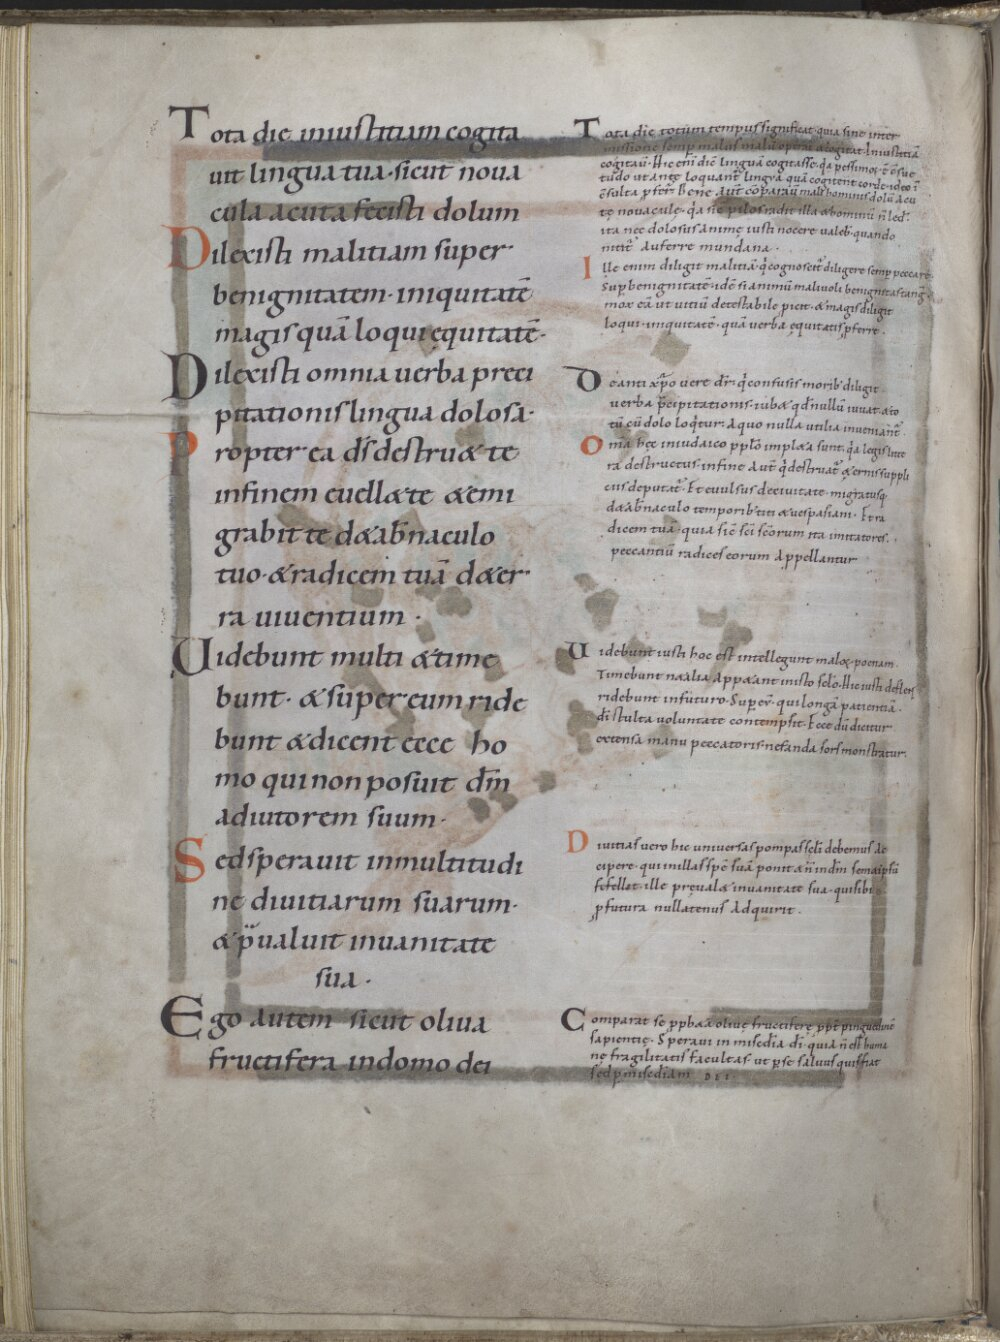 Tota die iniustitiam cogita
uit lingua tua · sicut noua
cula acuta fecisti dolum
Dilexisti malitiam super
benignitatem · iniquitatē
magis quā loqui ęquitatē ·
Dilexisti omnia uerba preci
pitationis lingua dolosa ·
Propter ea d̄s destru& te
infinem euell& te &emi
grabit te d&ab̄naculo
tuo · &radicem tuā d&er
ra uiuentium ·
Uidebunt multi &time
bunt · &super eum ride
bunt &dicent ecce ho
mo qui non posuit d̄m
adiutorem suum ·
Sed sperauit inmultitudi
ne diuitiarum suarum ·
&p̄ualuit inuanitate
sua ·
Ego autem sicut oliua
fructifera indomo dei
Tota die totum tempus significat · quia sine inter
missione semp malus malū operat
cogitaū · Hic enī diē linguā cogitasse · qa pessimoꝝ ē c̄sue
tudo ut ante loquant lingua quā cogitent corde · ideo
Bene aūt cōparaū mali hominis dolū acu
tę nouaculę · qa sic pilos radit illa &hominū n̄ led
ita nec dolosus animę iusti nocere ualeb · quando
nitit auferre mundana ·
Ille enim diligit malitiā · q̄ cognoscit diligere semp peccare
Sup benignitatē · idē si animū maliuoli benignitas tang
mox eā ut uitiū detestabile · & magis diligit
loqui · iniquitatē · quā uerba ęquitatis p̄ferre ·
Doanti xp̄o uere dr̄ · q̄ confusis morib diligit
uerba p̄cipitationis · iub& qd nullū iuuat
tū cū dolo loqtur · A quo nulla utilia inueniānt ·
Omā hęc iniudaico pplo impl&a sunt · qa legis lite
ra destructus · infine aūt q̄ destruat & ęternis suppli
ciis deputat · Et euulsus deciuitate · migratusq
d&ab̄naculo temporib titi &uespasiani · Et ra
dicem tuā · quia sic sc̄i sc̄orum ita imitatores ·
peccantiū radices eorum appellantur
Uidebunt iusti hoc est intellegunt maloꝝ poenam
Timebunt appa&ant inisto sclo · Hic iusti
ridebunt infuturo · Sup eū · qui longā patientiā ·
dī stulta uoluntate contempsit · Ecce dū dicitur
extensa manu peccatoris nefanda sors monstratur ·
Diuitias uero hic uniuersas pompas scli debemus ac
cipere · qui inillas spē suā ponit &n̄ indm̄ semaipsū
fefellit · ille preual& inuanitate sua · qui sibi
p̄futura nullatenus adquirit ·
Comparat se oliuę fructiferę pp̄t pinguedinē
sapientię · Speraui in misedia di · quia n̄ est huma
nę fragilitatis facultas ut p se saluus quis fiat
sed p misediam DEI ·